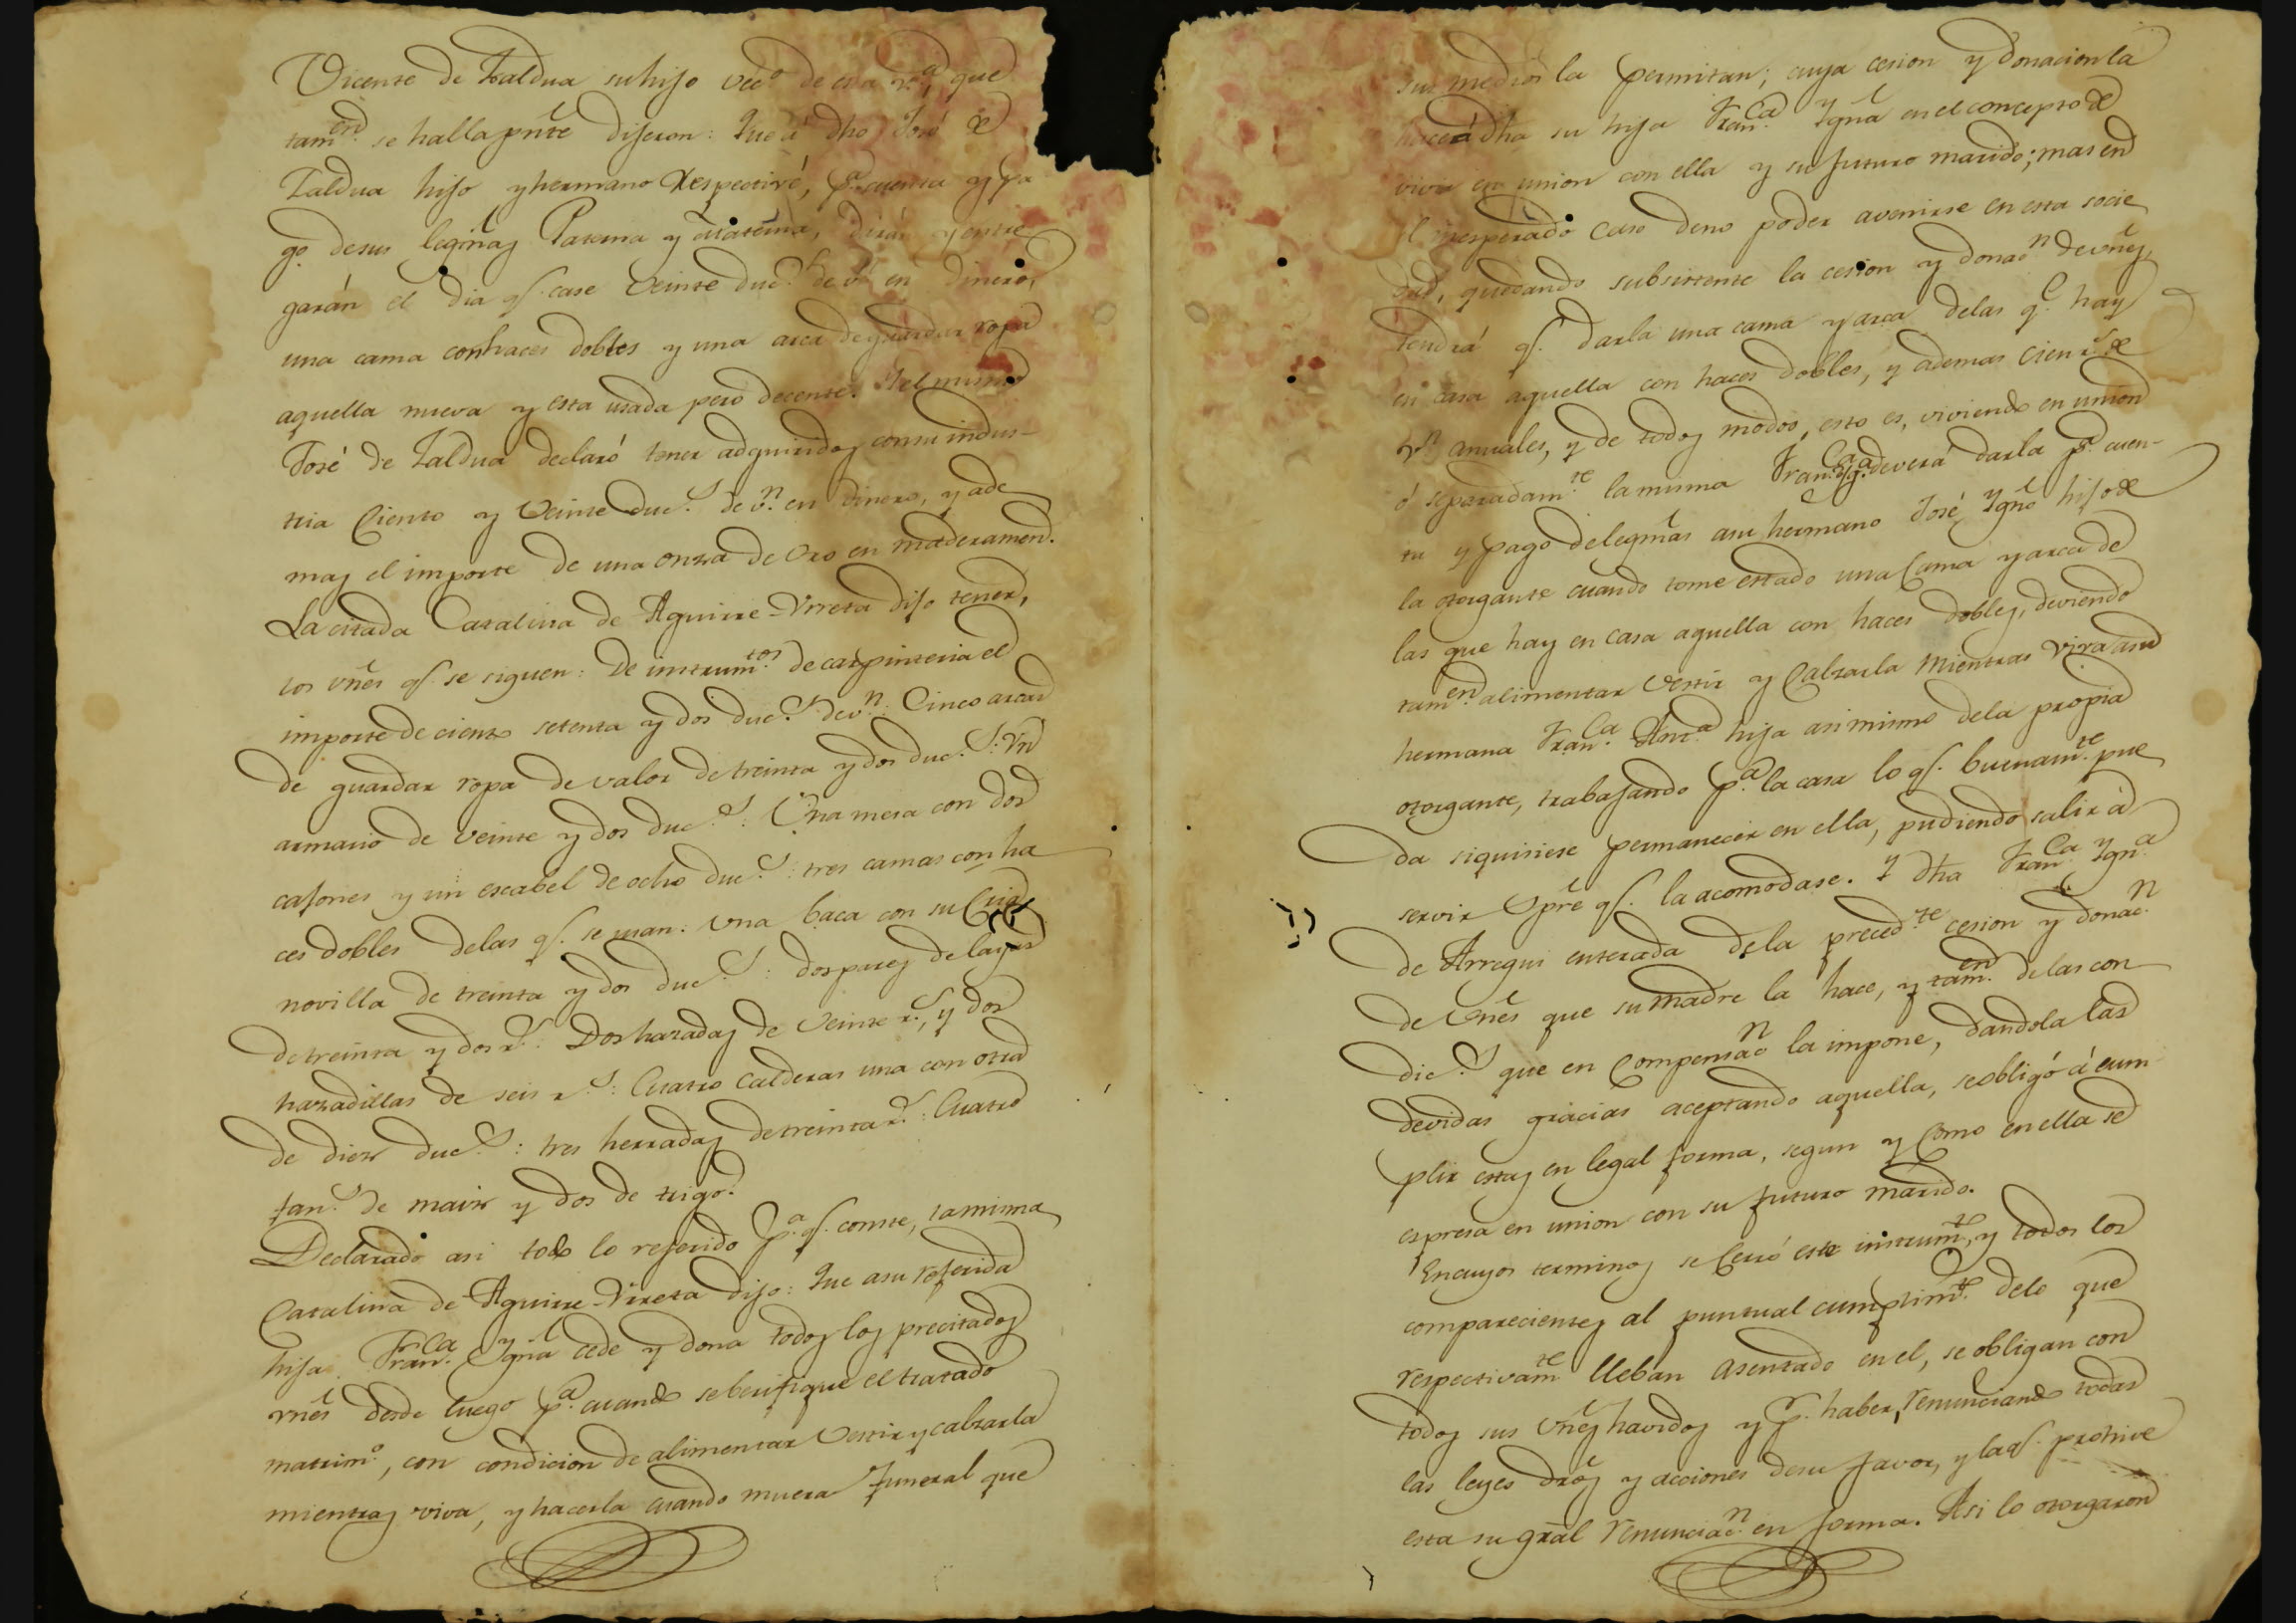 Vicente de Zaldua su hijo vec.º de esta v.ª, que
tam.en se halla pnte dijeron: Que á dho José de
Zaldua hijo y hermano respective, p.r cuenta y pa
go de sus legmas Paterna y Materna, dirán y entre
garán el dia q.e case veinte duc.s de v.n en dinero,
una cama con haces dobles y una arca de guardar ropa
aquella nueva y esta usada pero decente. Y el mismo
José de Zaldua declaró tener adquiridos con su indus-
tria Ciento y Veinte duc.s de v.n en dinero, y ade
mas el importe de una onza de Oro en maderamen.
La citada Catalina de Aguirre-Urreta dijo tener,
los vnes q.e se siguen: De instrum.tos de carpinteria el
importe de ciento setenta y dos duc.s de v.n: Cinco arcas
de guardar ropa de valor de treinta y dos duc.s: Un
armario de veinte y dos duc.s: Una mesa con dos
cajones y un escabel de ocho duc.s: tres camas con ha
ces dobles de las q.e se usan: Una baca con su Cria
novilla de treinta y dos duc.s: dos pares de layas
de treinta y dos r.s: Dos hazadas de Veinte r.s, y dos
hazadillas de seis r.s: Cuatro calderas una con otra
de diez duc.s: tres herradas de treinta r.s: Cuatro
fan.s de maiz y dos de trigo.
Declarado asi todo lo referido p.a q.e conste, la misma
Catalina de Aguirre-Urreta dijo: Que a su referida
hija Fran.ca Ygna cede y dona todos los precitados
vnes desde luego p.a cuando se berifique el tratado
matrim.º, con condicion de alimentar Vestir y calzarla
mientras viva, y hacerla cuando muera funeral que
sus medios la permitan; cuya cesion y donacion la
hace á dha su hija Fran.ca Ygna en el concepto de
vivir en union con ella y su futuro marido; mas en
el inesperado caso de no poder avenirse en esta socie
dad, quedando subsistente la cesion y donac.n de vnes,
tendrá q.e darla una cama y arca de las q.e hay
en casa aquella con haces dobles, y ademas Cien r.s de
v.n anuales, y de todos modos, esto es, viviendo en union
ó separadam.te la misma Fran.ca Yg.a deverá darla p.r cuen-
ta y pago de legmas a su hermano José Ygno hijo de
la otorgante cuando tome estado una Cama y arca de
las que hay en casa aquella con haces dobles, deviendo
tam.en alimentar vestir y Calzarla mientras viva a su
hermana Fran.ca Ant.a hija asi mismo de la propia
otorgante, trabajando p.a la casa lo q.e buenam.te pue
da si quisiese permanecer en ella, pudiendo salir á
servir spre q.e la acomodase. Y dha Fran.ca Ygn.a
de Arregui enterada de la preced.te cesion y donac.n
de Vnes que su madre la hace, y tam.en de las con
dic.s que en Compensac.n la impone, dandola las
devidas gracias aceptando aquella, se obligó á cum
plir estas en legal forma, segun y Como en ella se
espresa en union con su futuro marido.
En cuyos terminos se Cerró este instrum.to, y todos los
comparecientes al puntual cumplim.to de lo que
respectivam.te lleban asentado en el, se obligan con
todos sus Vnes havidos y p.r haber, renunciando todas
las leyes dros y acciones de su favor, y la q.e prohive
esta su gral renunciac.n en forma. Asi lo otorgaron